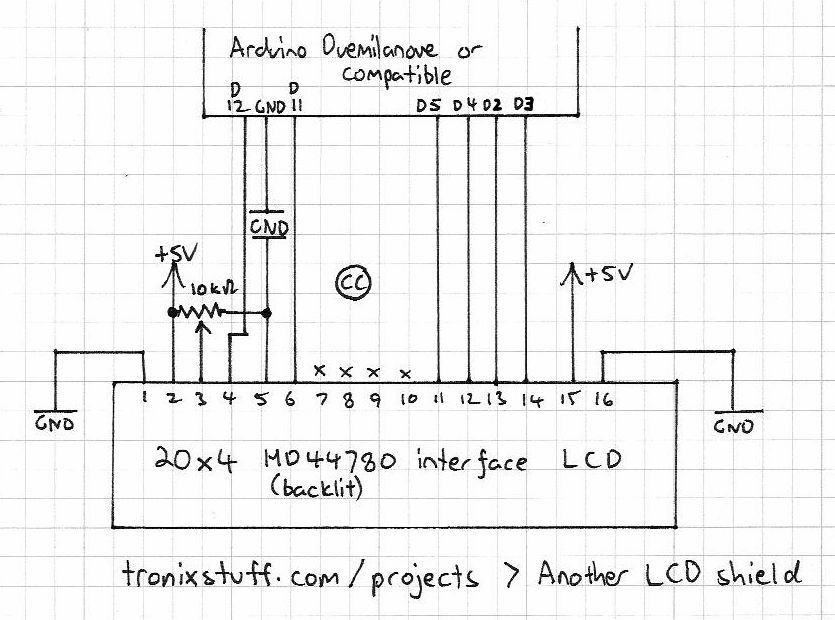 Arduino Duemilanove or
compatible
D D
12 GND 11 D5 D4 D2 D3
GND
+5V
10kΩ
CC
+5V
x x x x
1 2 3 4 5 6 7 8 9 10 11 12 13 14 15 16
GND
GND
20x4 HD44780 interface LCD
(backlit)
tronixstuff.com/projects > Another LCD shield